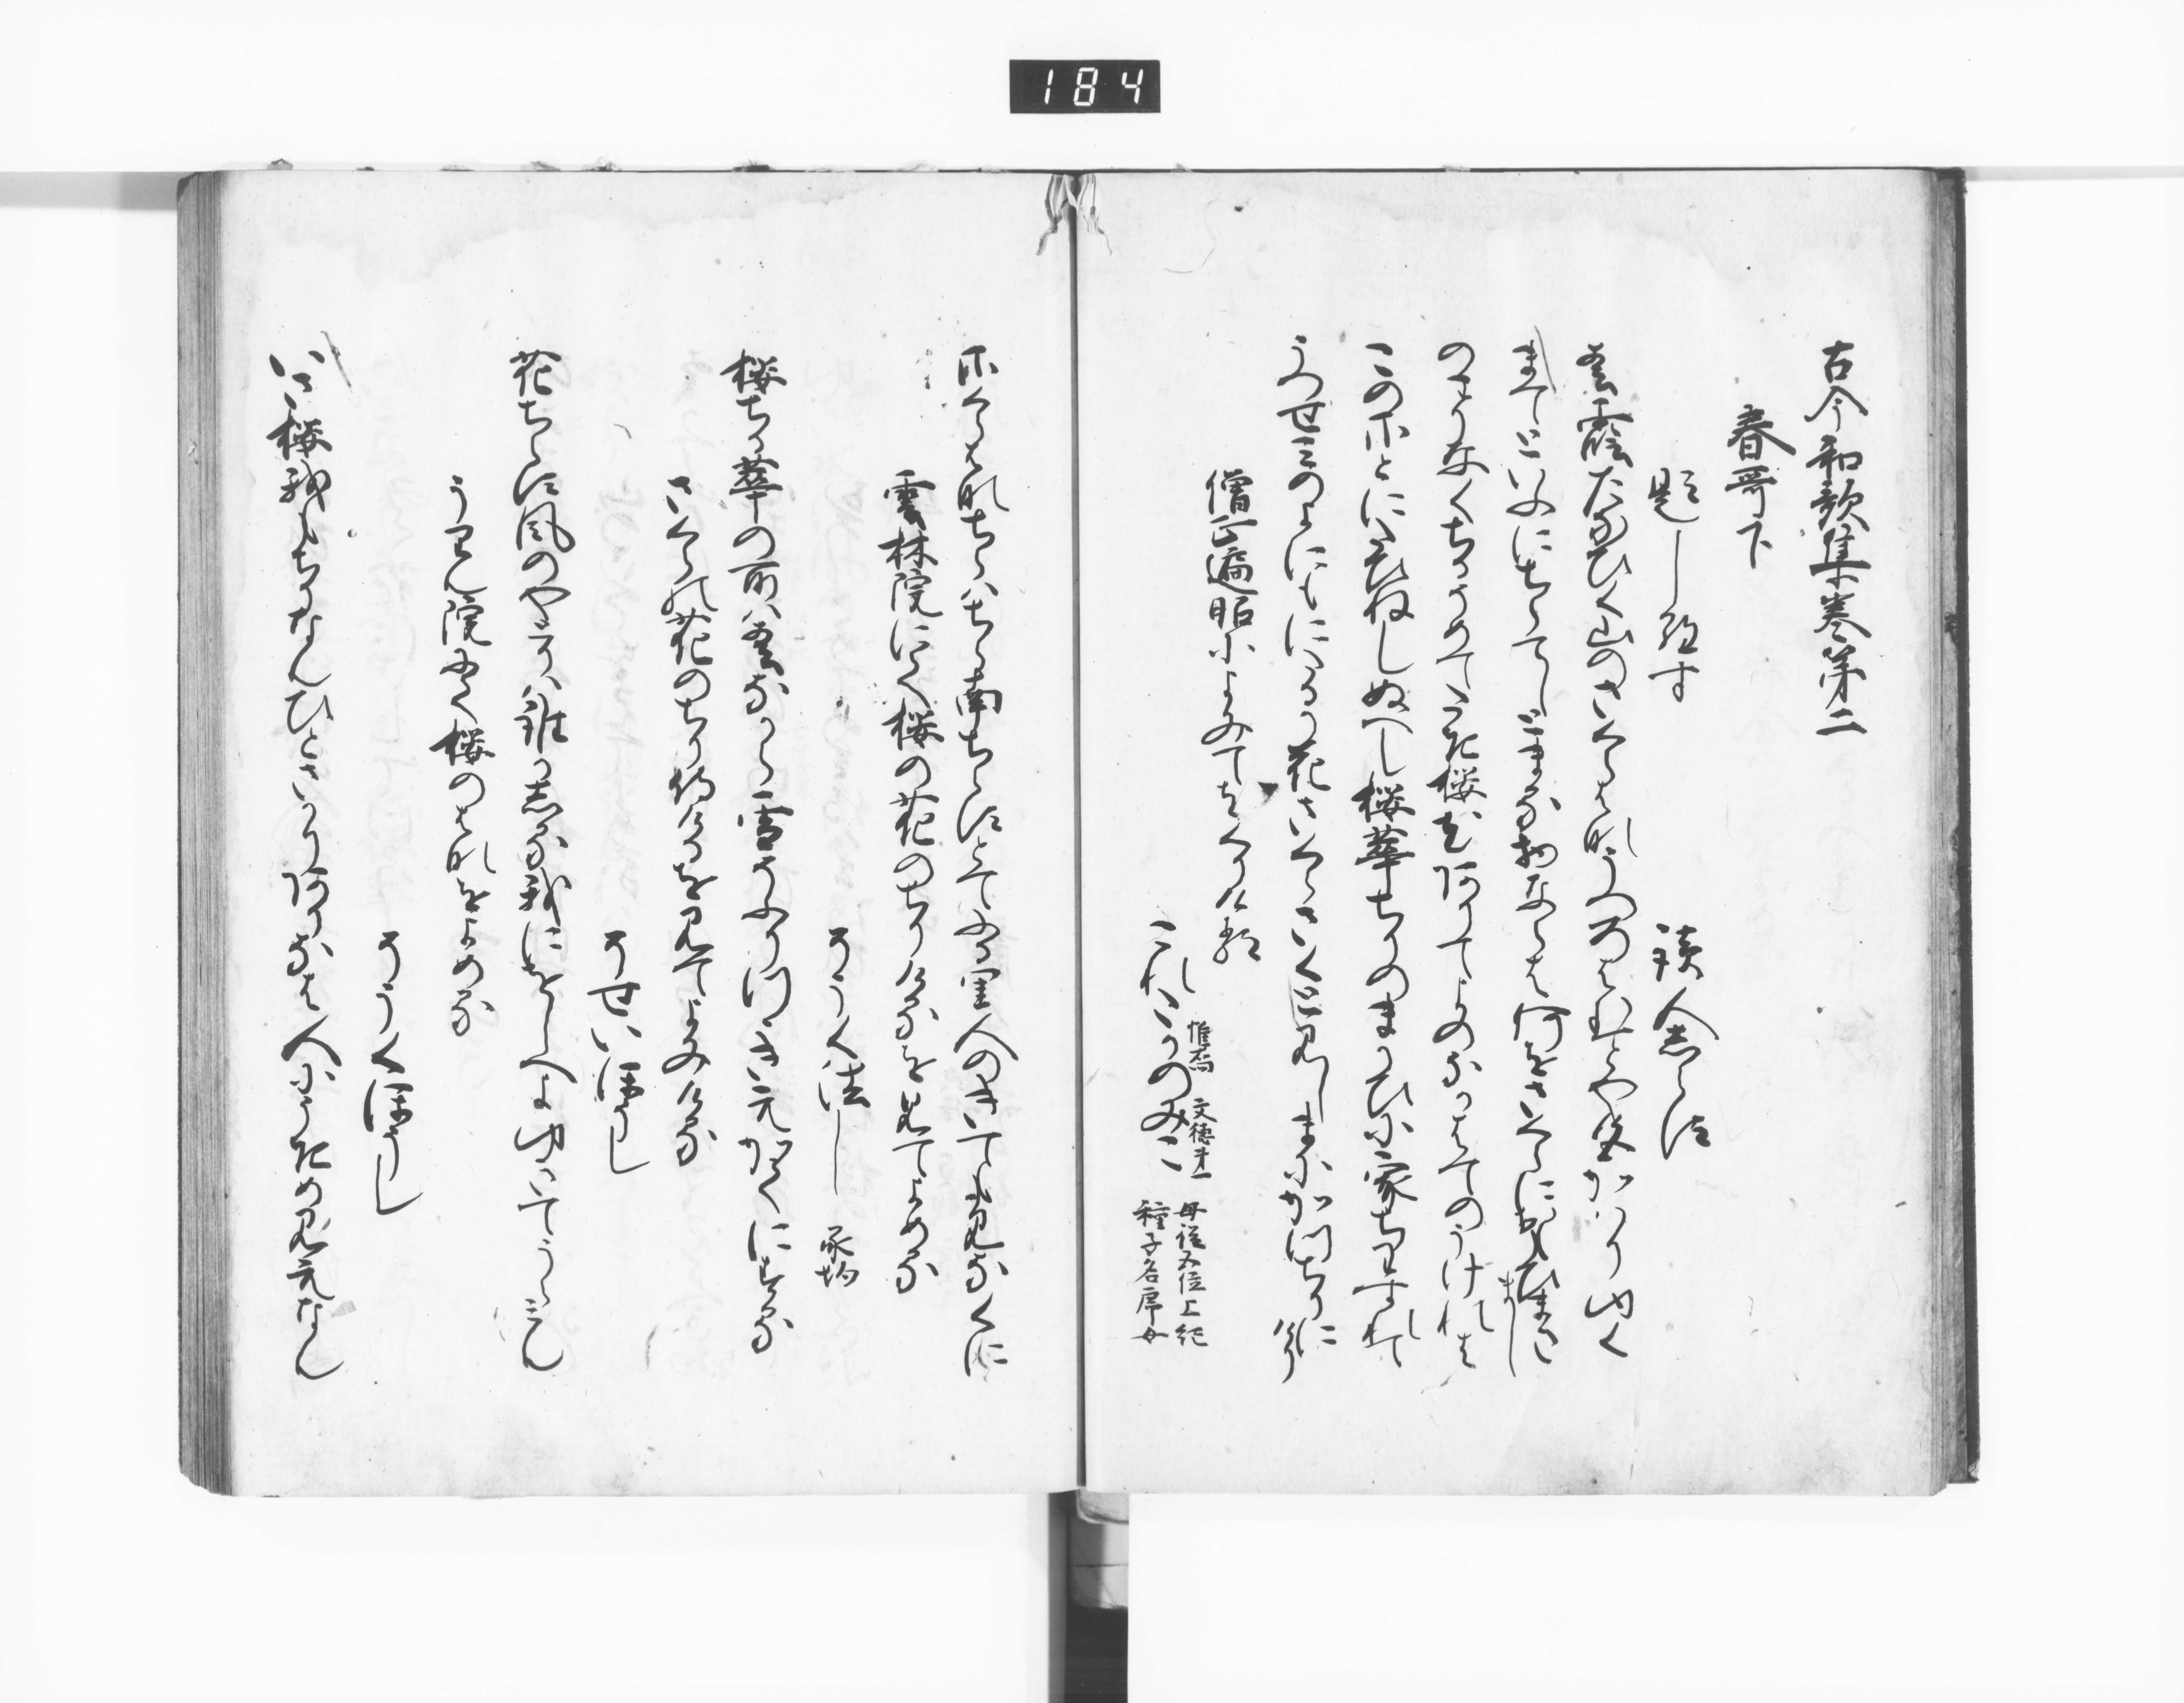 184
古今和歌集巻第二
春哥下
題しらす
読人しらす
春霞たなひく山のさくらはなうつろはむとや色かはりゆく
まてといふにちらてしとまる物ならは何をさくらに思ひまさまし
のこりなくちるそめてたき桜花ありてよの中はてのうけれは
このさとにたひねしぬへし桜花ちりのまかひに家ちわすれて
うつせみのよにもにたるか花さくらさくと見しまにかつちりにけり
僧正遍昭によみてをくりける
これたかのみこ
惟喬 文徳第一
母従五位上紀
種子名席女
さくらはなちらはちら南ちらすとてふるさと人のきても見なくに
雲林院にて桜の花のちりけるを見てよめる
そうく法し 承均
桜ちる花の所は春なから雪そふりつゝきえかてにする
さくらの花のちり侍けるを見てよみける
そせいほうし
花ちらす風のやとりは誰かしる我にをしへよゆきてうらみん
うりん院にて桜のはなをよめる
そうくほうし
いさ桜我もちりなんひとさかりありなは人にうきめ見えなん